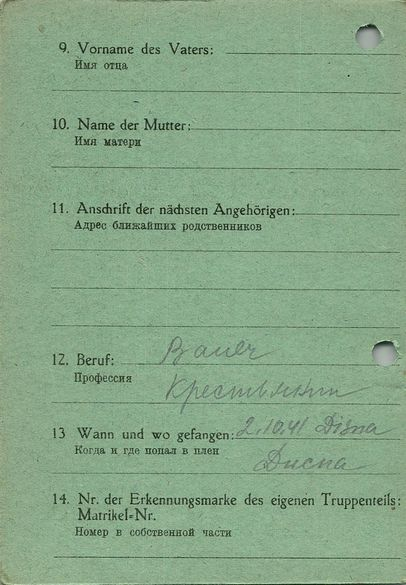 9. Vorname des Vaters:
Имя отца
10. Name der Mutter:
Имя матери
11. Anschrift der nächsten Angehörigen:
Адрес ближайших родственников
12. Beruf: Bauer
Профессия Крестьянин
13 Wann und wo gefangen: 2.10.41 Disna
Когда и где попал в плен Дисна
14. Nr. der Erkennungsmarke des eigenen Truppenteils:
Matrikel=Nr.
Номер в собственной части